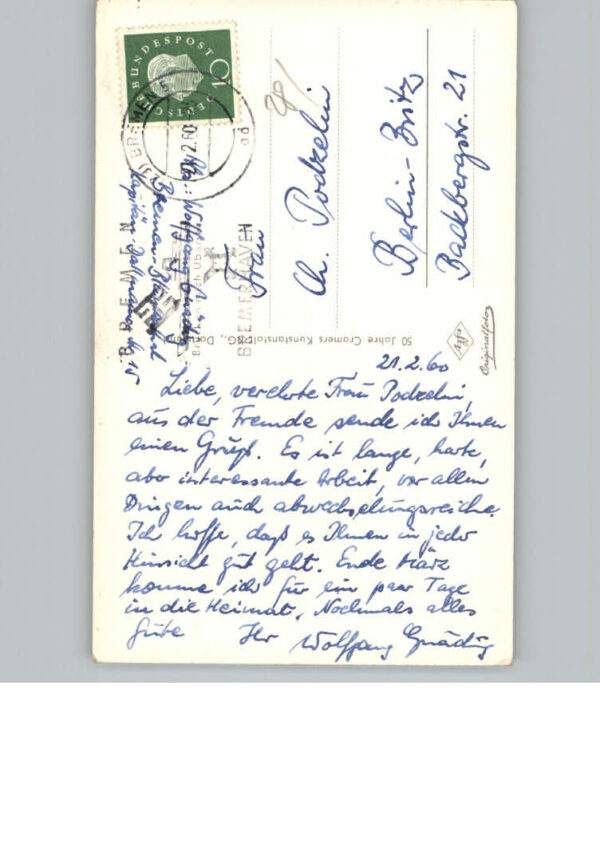 DEUTSCHE
BUNDESPOST
10
BREMEN
.2.60
BREMEN
BREMERHAVEN
Wolfgang Gnädig
Bremen-Blumenthal
Kapitän-Dallmann-Str. 15
Frau
Ch. Podzelni
Berlin-Britz
Backbergstr. 21
50 Jahre Cramers Kunstanstalt KG., Dortmund
Agfa
Originalfoto
21.2.60
Liebe, verehrte Frau Podzelni,
aus der Fremde sende ich Ihnen
einen Gruß. Es ist lange, harte,
aber interessante Arbeit, vor allen
Dingen auch abwechselungsreiche.
Ich hoffe, daß es Ihnen in jeder
Hinsicht gut geht. Ende März
komme ich für ein paar Tage
in die Heimat. Nochmals alles
Gute Ihr Wolfgang Gnädig